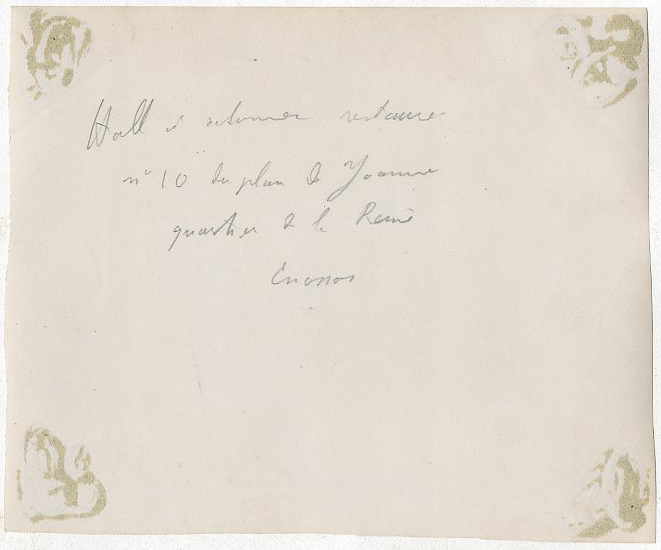 Hall à colonnes restauré
n° 10 du plan de Joanne
quartier de la Reine
Cnossos